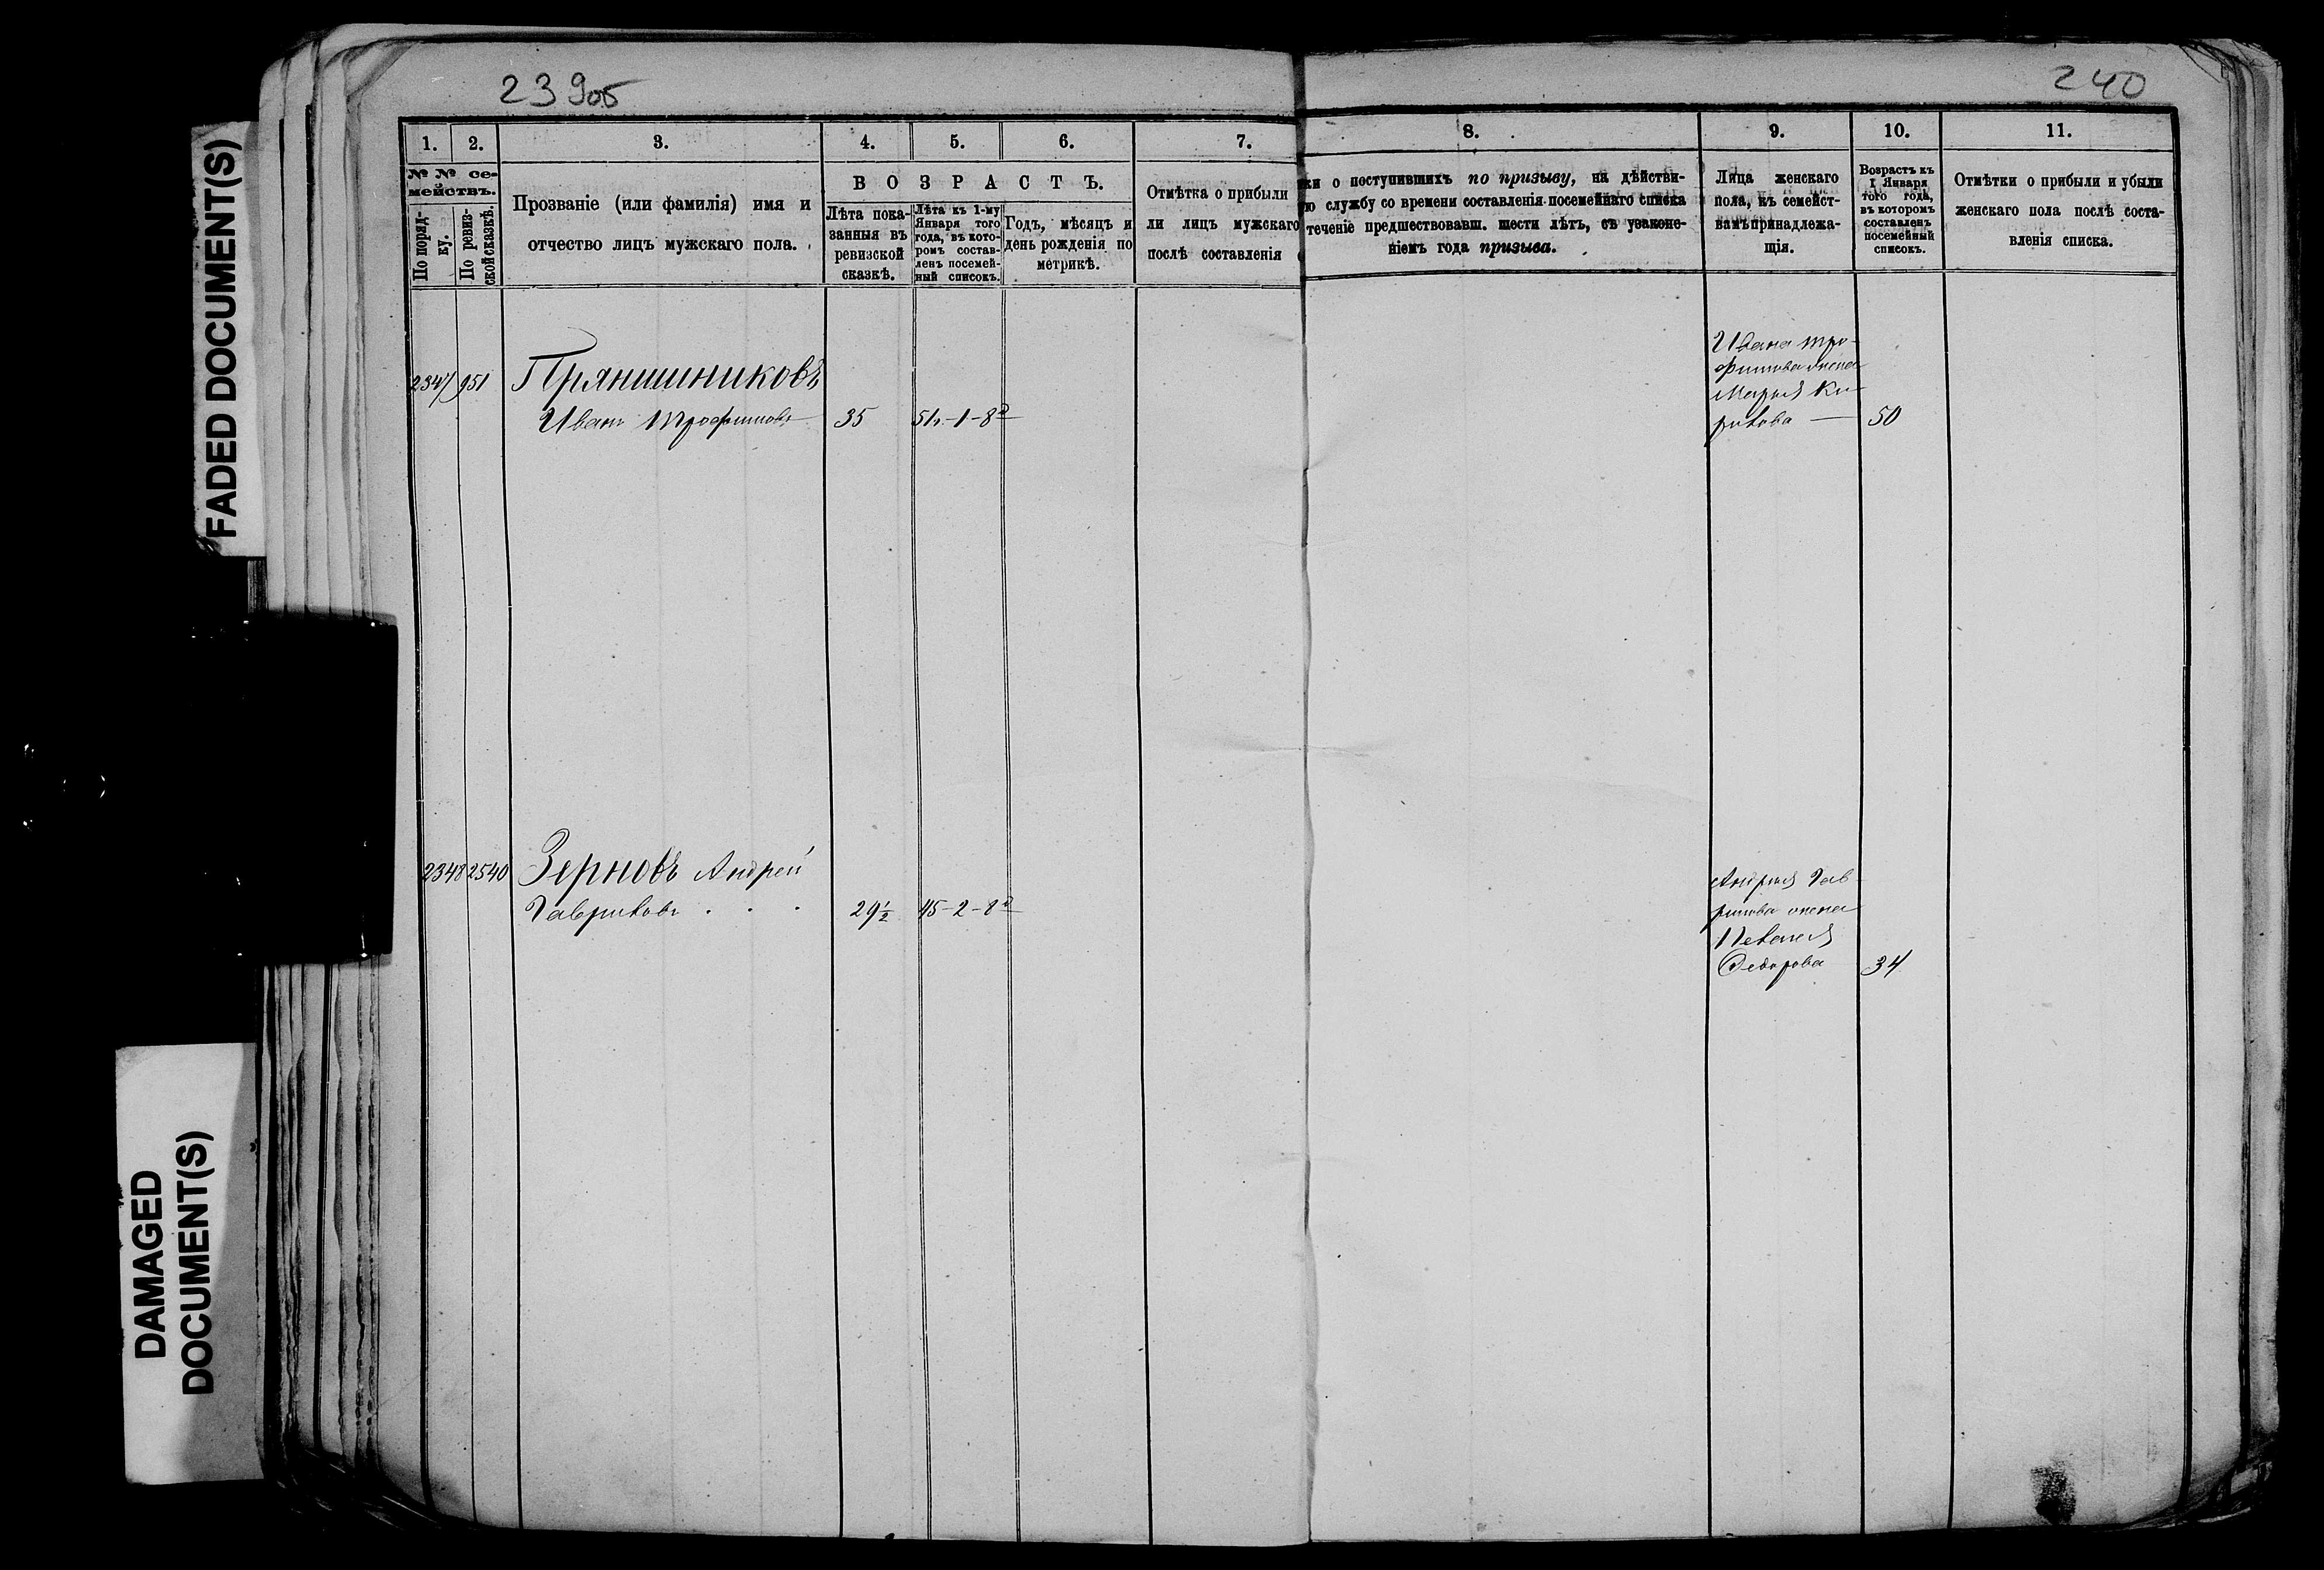 239об
240
1.
2.
3.
4.
5.
6.
7.
8.
9.
10.
11.
№ № се-
мействъ.
По поряд-
ку.
По ревиз-
ской сказкѣ.
Прозваніе (или фамилія) имя и
отчество лицъ мужскаго пола.
ВОЗРАСТЪ.
Лѣта пока-
занныя въ
ревизской
сказкѣ.
Лѣта къ 1-му
Января того
года, въ кото-
ромъ состав-
ленъ посемей-
ный списокъ.
Годъ, мѣсяцъ и
день рожденія по
метрикѣ.
Отмѣтка о прибыли
ли лицъ мужскаго
послѣ составленія
ки о поступившихъ по призыву, на дѣйстви-
ю службу со времени составленія посемейнаго списка
теченіе предшествовавш. шести лѣтъ, съ узаконе-
ніемъ года призыва.
Лица женскаго
пола, къ семейст-
вамъ принадлежа-
щія.
Возрастъ къ
1 Января
того года,
въ которомъ
составленъ
посемейный
списокъ.
Отмѣтки о прибыли и убыли
женскаго пола послѣ соста-
вленія списка.
2347 951 Пряншниковъ
Иванъ Трофимовъ 35
Ивана Тро-
фимова жена
Марья Ки-
рилова — 50
2348 2540 Зерновъ Андрей
Гавриловъ . . . 29½ 45-2-8
Андрея Гав-
рилова жена
Пелагея
Федорова 34
FADED DOCUMENT(S)
DAMAGED
DOCUMENT(S)